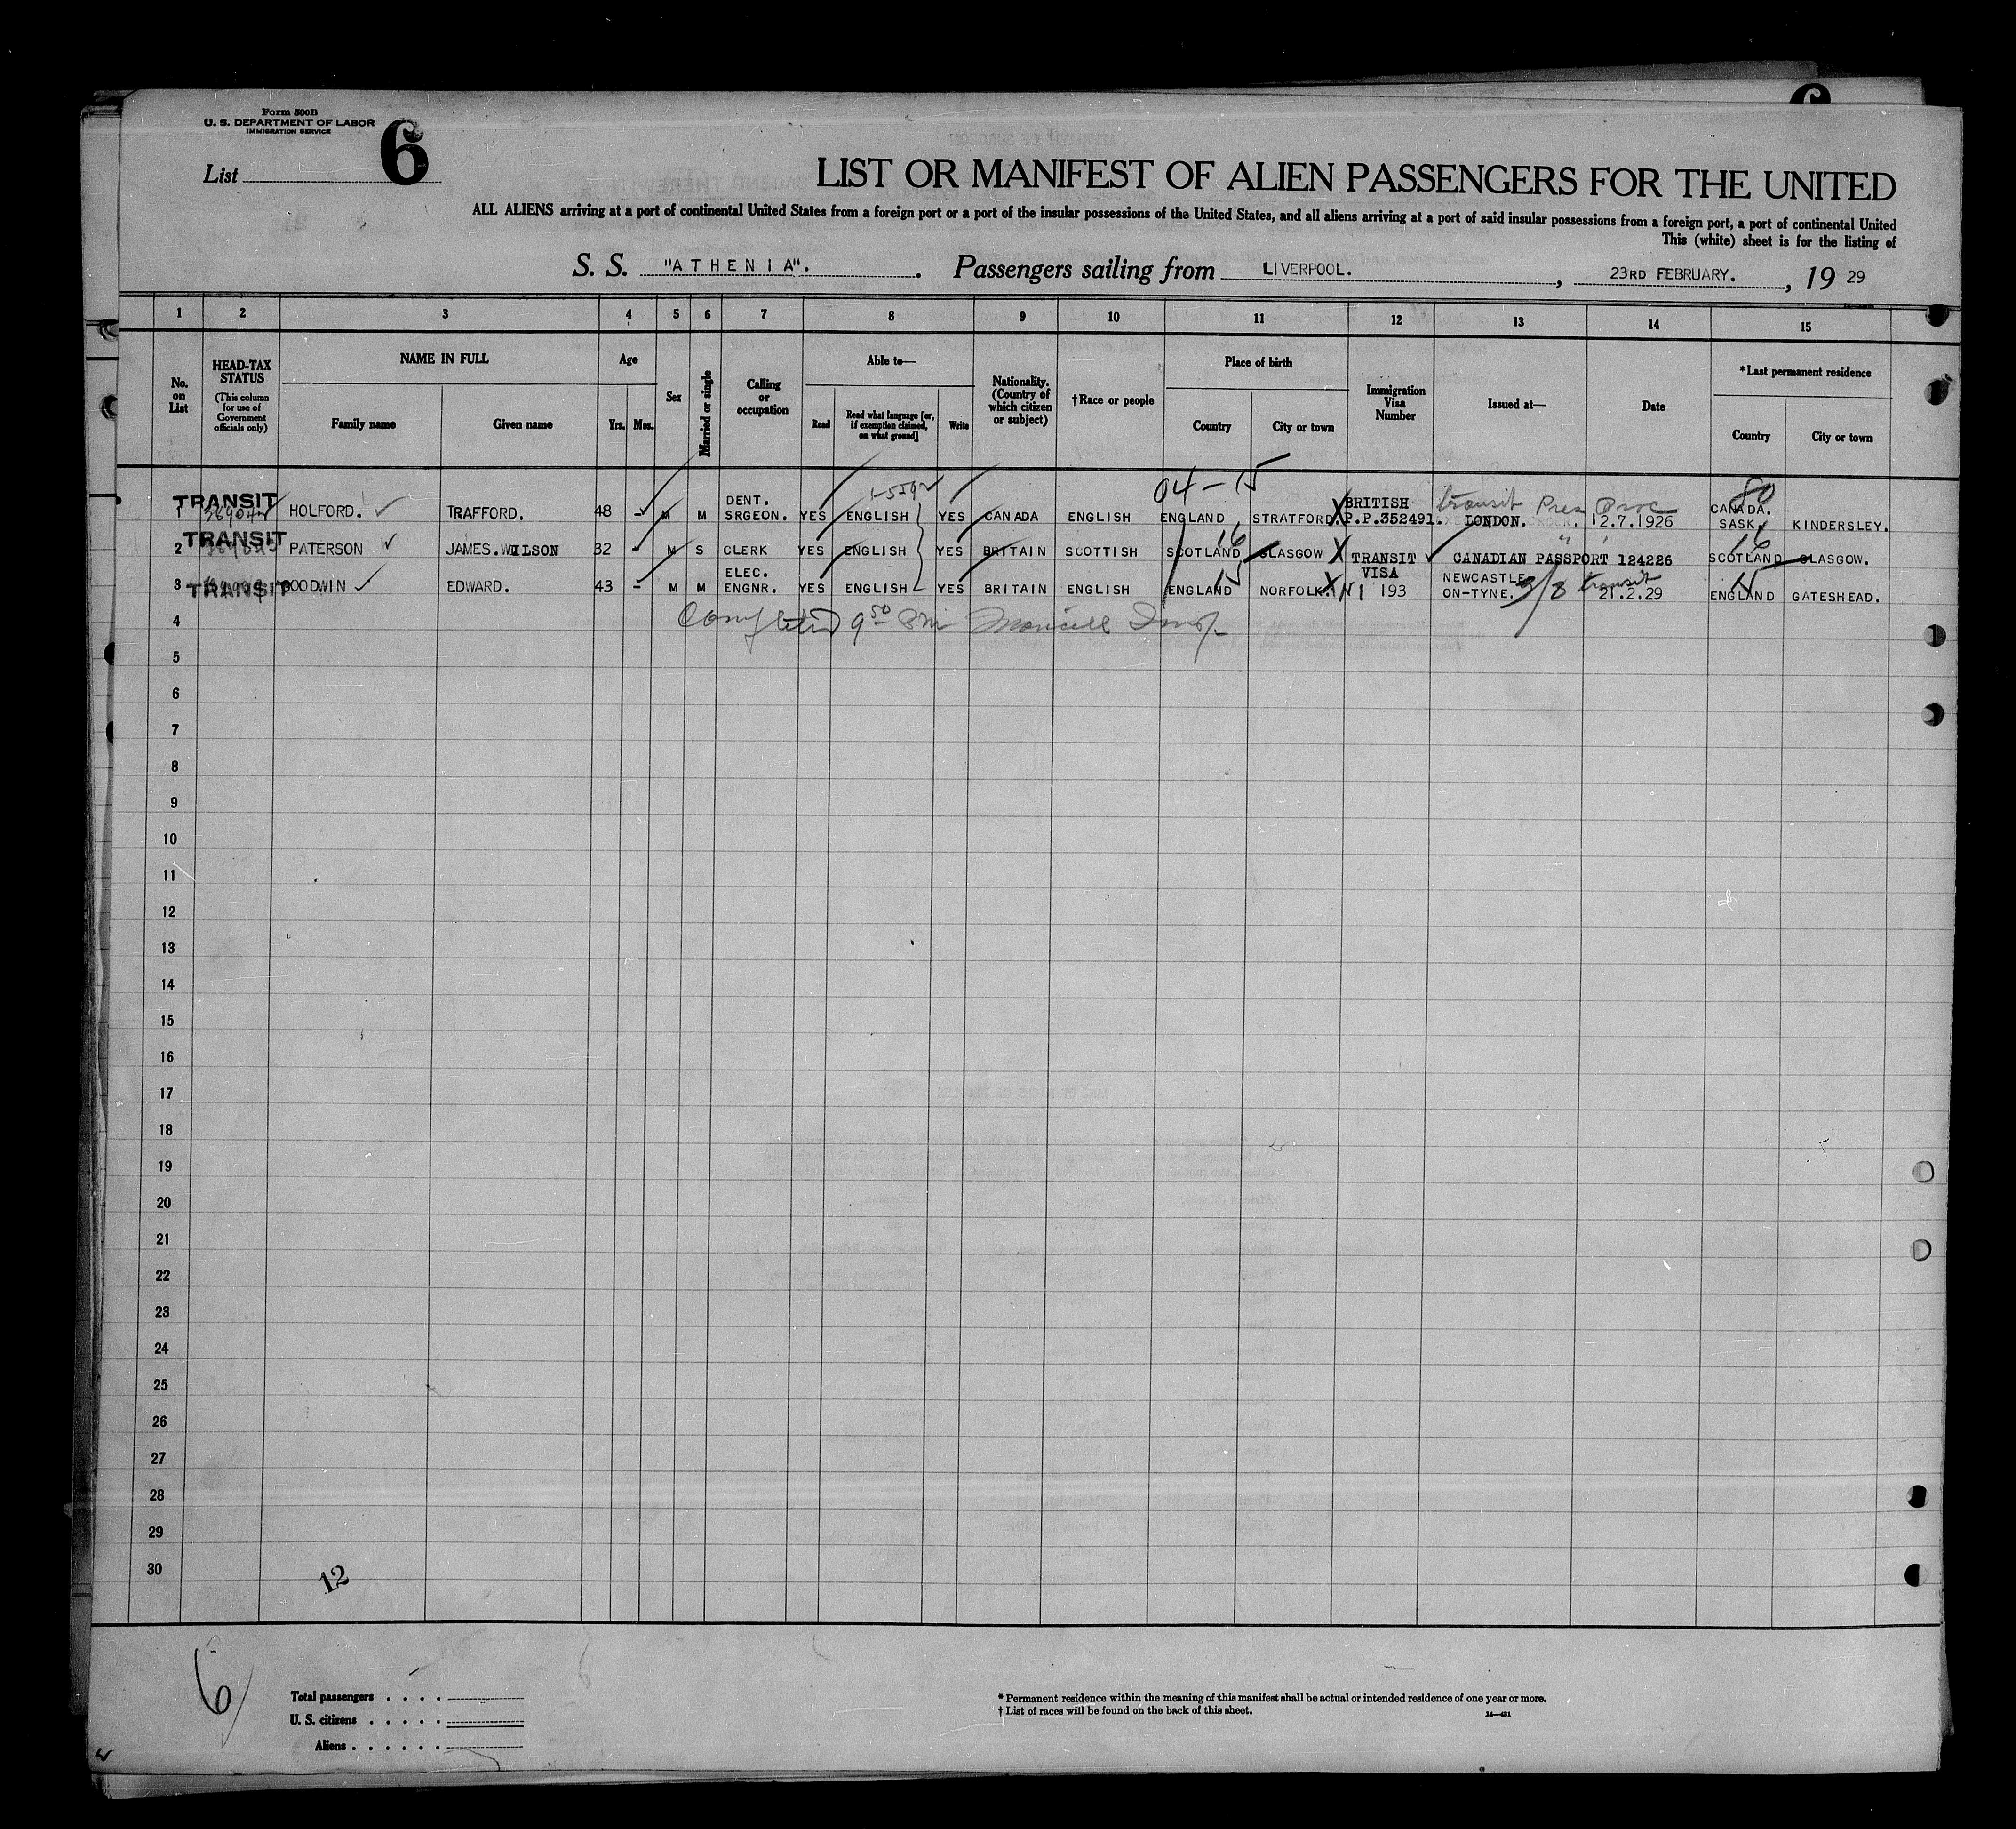 Form 500B
U. S. DEPARTMENT OF LABOR
IMMIGRATION SERVICE
List 6
LIST OR MANIFEST OF ALIEN PASSENGERS FOR THE UNITED
ALL ALIENS arriving at a port of continental United States from a foreign port or a port of the insular possessions of the United States, and all aliens arriving at a port of said insular possessions from a foreign port, a port of continental United
This (white) sheet is for the listing of
S. S. "ATHENIA". Passengers sailing from LIVERPOOL. , 23RD FEBRUARY. , 19 29
1 2 3 4 5 6 7 8 9 10 11 12 13 14 15
No. on List
HEAD-TAX STATUS
(This column for use of Government officials only)
NAME IN FULL
Family name Given name
Age
Yrs. Mos.
Sex
Married or single
Calling or occupation
Able to—
Read Read what language [or, if exemption claimed, on what ground] Write
Nationality. (Country of which citizen or subject)
†Race or people
Place of birth
Country City or town
Immigration Visa Number
Issued at—
Date
*Last permanent residence
Country City or town
04-15
1 TRANSIT HOLFORD. TRAFFORD. 48 - M M DENT. SRGEON. YES ENGLISH YES CANADA ENGLISH ENGLAND STRATFORD. X BRITISH P.P.352491. transit LONDON. 12.7.1926 80 CANADA. SASK. KINDERSLEY.
2 TRANSIT PATERSON JAMES.WILSON 32 - M S CLERK YES ENGLISH YES BRITAIN SCOTTISH SCOTLAND 16 GLASGOW X TRANSIT CANADIAN PASSPORT 124226 SCOTLAND 16 GLASGOW.
3 TRANSIT GOODWIN EDWARD. 43 - M M ELEC. ENGNR. YES ENGLISH YES BRITAIN ENGLISH ENGLAND 15 NORFOLK. X VISA 193 NEWCASTLE ON-TYNE. 3/8 transit 21.2.29 ENGLAND 15 GATESHEAD.
4 Completed 9 50
5
6
7
8
9
10
11
12
13
14
15
16
17
18
19
20
21
22
23
24
25
26
27
28
29
30
12
6
Total passengers . . . .
U. S. citizens . . . . .
Aliens . . . . . .
* Permanent residence within the meaning of this manifest shall be actual or intended residence of one year or more.
† List of races will be found on the back of this sheet.
14—421